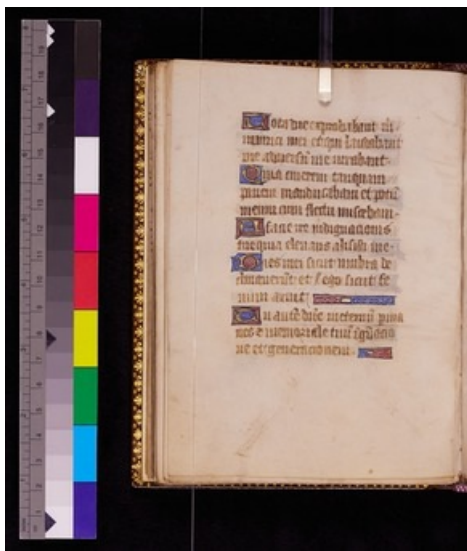 Tota die exprobrabant m
inimici mei et qui laudabant
me adversū me iurabant
Quia cinerem tanquam
panem manducabam et potū
meum cum fletu miscebam
A facie ire indignacionis
me quia elevans allisisti me
Dies mei sicut umbra de
clinaverūt et ego sicut fe
num arui
Tu autē dñe in eternū p̄ma
nes et memoriale tuū ī gñacio
ne et generacionem